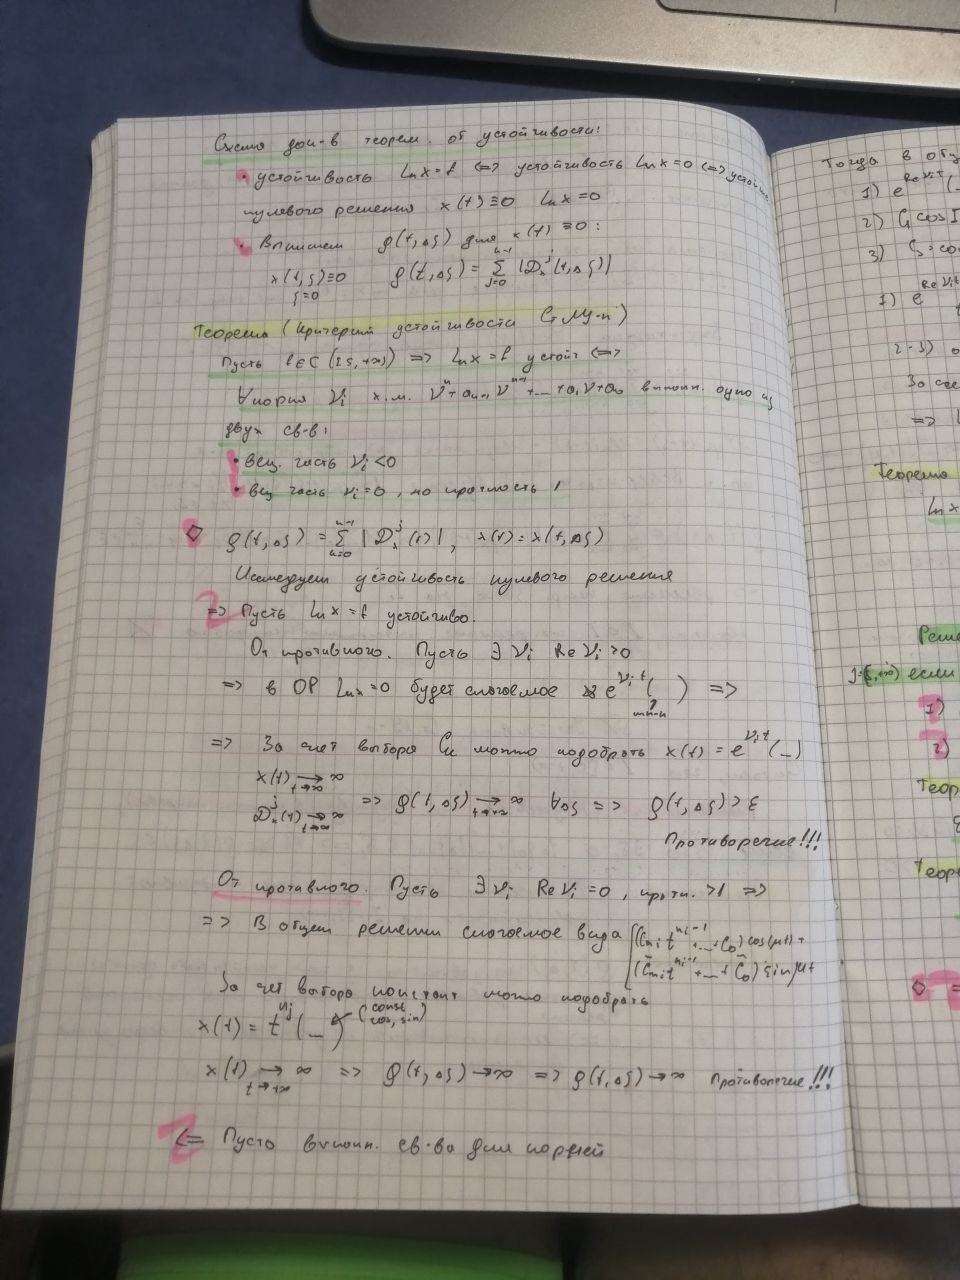 Схема док-в теорем. об устойчивости:
• устойчивость Lnx = f <=> устойчивость Lnx = 0 <=> устойч
нулевого решения x(t) ≡ 0 Lnx = 0
• Впишем ρ(t, Δξ) для x(t) ≡ 0:
x(t, ξ) ≡ 0 ρ(t, Δξ) = Σ_{j=0}^{n-1} |D_x^j (t, Δξ)|
ξ=0
Теорема (Критерий устойчивости Ст лу-п)
Пусть f∈C([s, +∞) => Lnx = f устойч <=>
∀ корня ν_i х.м. ν^n + a_{n-1} ν^{n-1} + ... + a_1 ν + a_0 выполн. одно из
двух св-в:
• вещ. часть ν_i < 0
• вещ часть ν_i = 0, но кратность 1
◇ ρ(t, Δξ) = Σ_{k=0}^{n-1} | D_x^j (t) |, x(t) = x(t, Δξ)
Исследуем устойчивость нулевого решения
=> Пусть Lnx = f устойчиво.
От противного. Пусть ∃ ν_i Re ν_i > 0
=> в ОР Lnx = 0 будет слагаемое e^{ν_i t} ( ) =>
мн-н
=> За счет выбора C_k можно подобрать x(t) = e^{ν_i t} (...)
x(t) →_{t→∞} ∞
D_x^j (t) →_{t→∞} ∞ => ρ(t, Δξ) →_{t→+∞} ∞ ∀Δξ => ρ(t, Δξ) > ε
Противоречие!!!
От противного. Пусть ∃ ν_i Re ν_i = 0, кратн. > 1 =>
=> В общем решении слагаемое вида [(C_{n_i} t^{n_i-1} + ... + C_0) cos(μt) +
[(C̄_{n_i} t^{n_i-1} + ... + C̄_0) sin μt
За счет выбора констант можно подобрать
x(t) = t^{n_j} (...) (const cos, sin)
x(t) →_{t→+∞} ∞ => ρ(t, Δξ) → ∞ => ρ(t, Δξ) → ∞ Противоречие!!!
<= Пусть выполн. св-ва для корней
Тогда в общ
1) e^{Re ν_i t} (
2) C_1 cos I
3)
1) e^{Re ν_i t}
2-3)
За сче
=>
Теорема
Lnx
Реше
если
1)
2)
Теор
Теор
◇ =